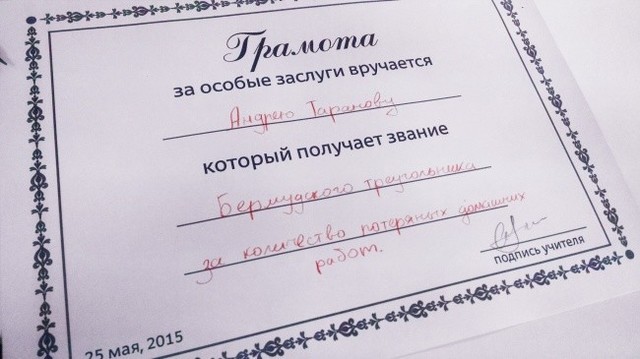 Грамота
за особые заслуги вручается
Андрею Таранову
который получает звание
Бермудского треугольника
за количество потеряных домашних
работ.
подпись учителя
25 мая, 2015